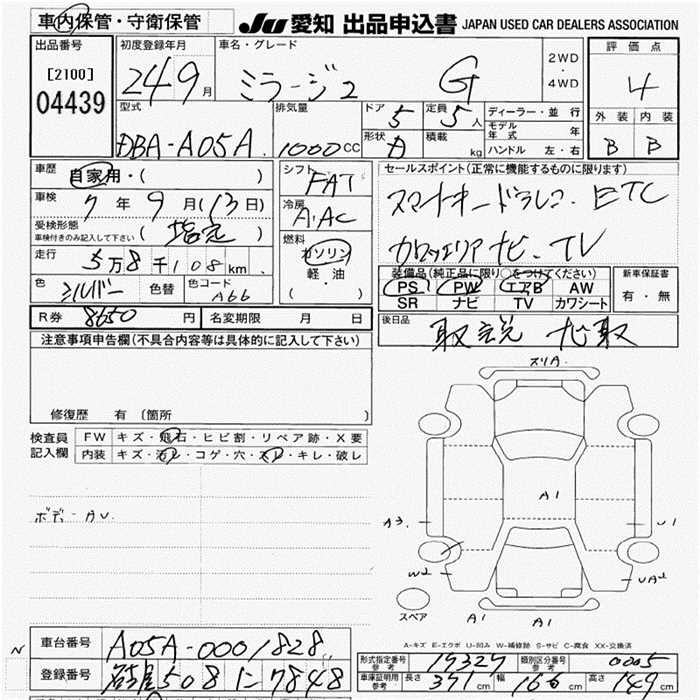 車内保管・守衛保管 JU 愛知 出品申込書 JAPAN USED CAR DEALERS ASSOCIATION
出品番号 初度登録年月 車名・グレード 2WD ・ 4WD 評価点
[2100] 04439 24 9 月 ミラージュ G 4
型式 排気量 ドア 5 定員 5 人 ディーラー・並行 外装 内装
DBA-A05A 1000 CC 形状 積載 kg モデル年式 年 B B
ハンドル 左・右
車歴 自家用・( ) シフト FAT セールスポイント(正常に機能するものに限ります)
車検 7 年 9 月(13日) 冷房 A・AC スマートキー ドラレコ ETC
受検形態 車検付きのみ記入して下さい ( 指定 ) 燃料 ガソリン 軽・油 ( ) カロッツェリアナビ・TV
走行 5万8千108 km 装備品(純正品に限り○をつけてください) 新車保証書
色 シルバー 色替 色コード A66 PS PW エアB AW 有・無
SR ナビ TV カワシート
R券 8650 円 名変期限 月 日 後日品 取説
注意事項申告欄(不具合内容等は具体的に記入して下さい)
スリA
修復歴 有 (箇所
検査員 FW キズ・飛石・ヒビ割・リペア跡・X要
記入欄 内装 キズ・汚レ・コゲ・穴・スレ・キレ・破レ
A1
ボデーAU
A3 U1
W2 UA2
スペア A1 A1
A-キズ E-エクボ U-凹み W-補修跡 S-サビ C-腐食 XX-交換済
N 車台番号 A05A-0001828
形式指定番号 参考 17327 類別区分番号 参考 0005
登録番号 508 に 7848
車庫証明用 参考 長さ 371 cm 幅 166 cm 高さ 149 cm